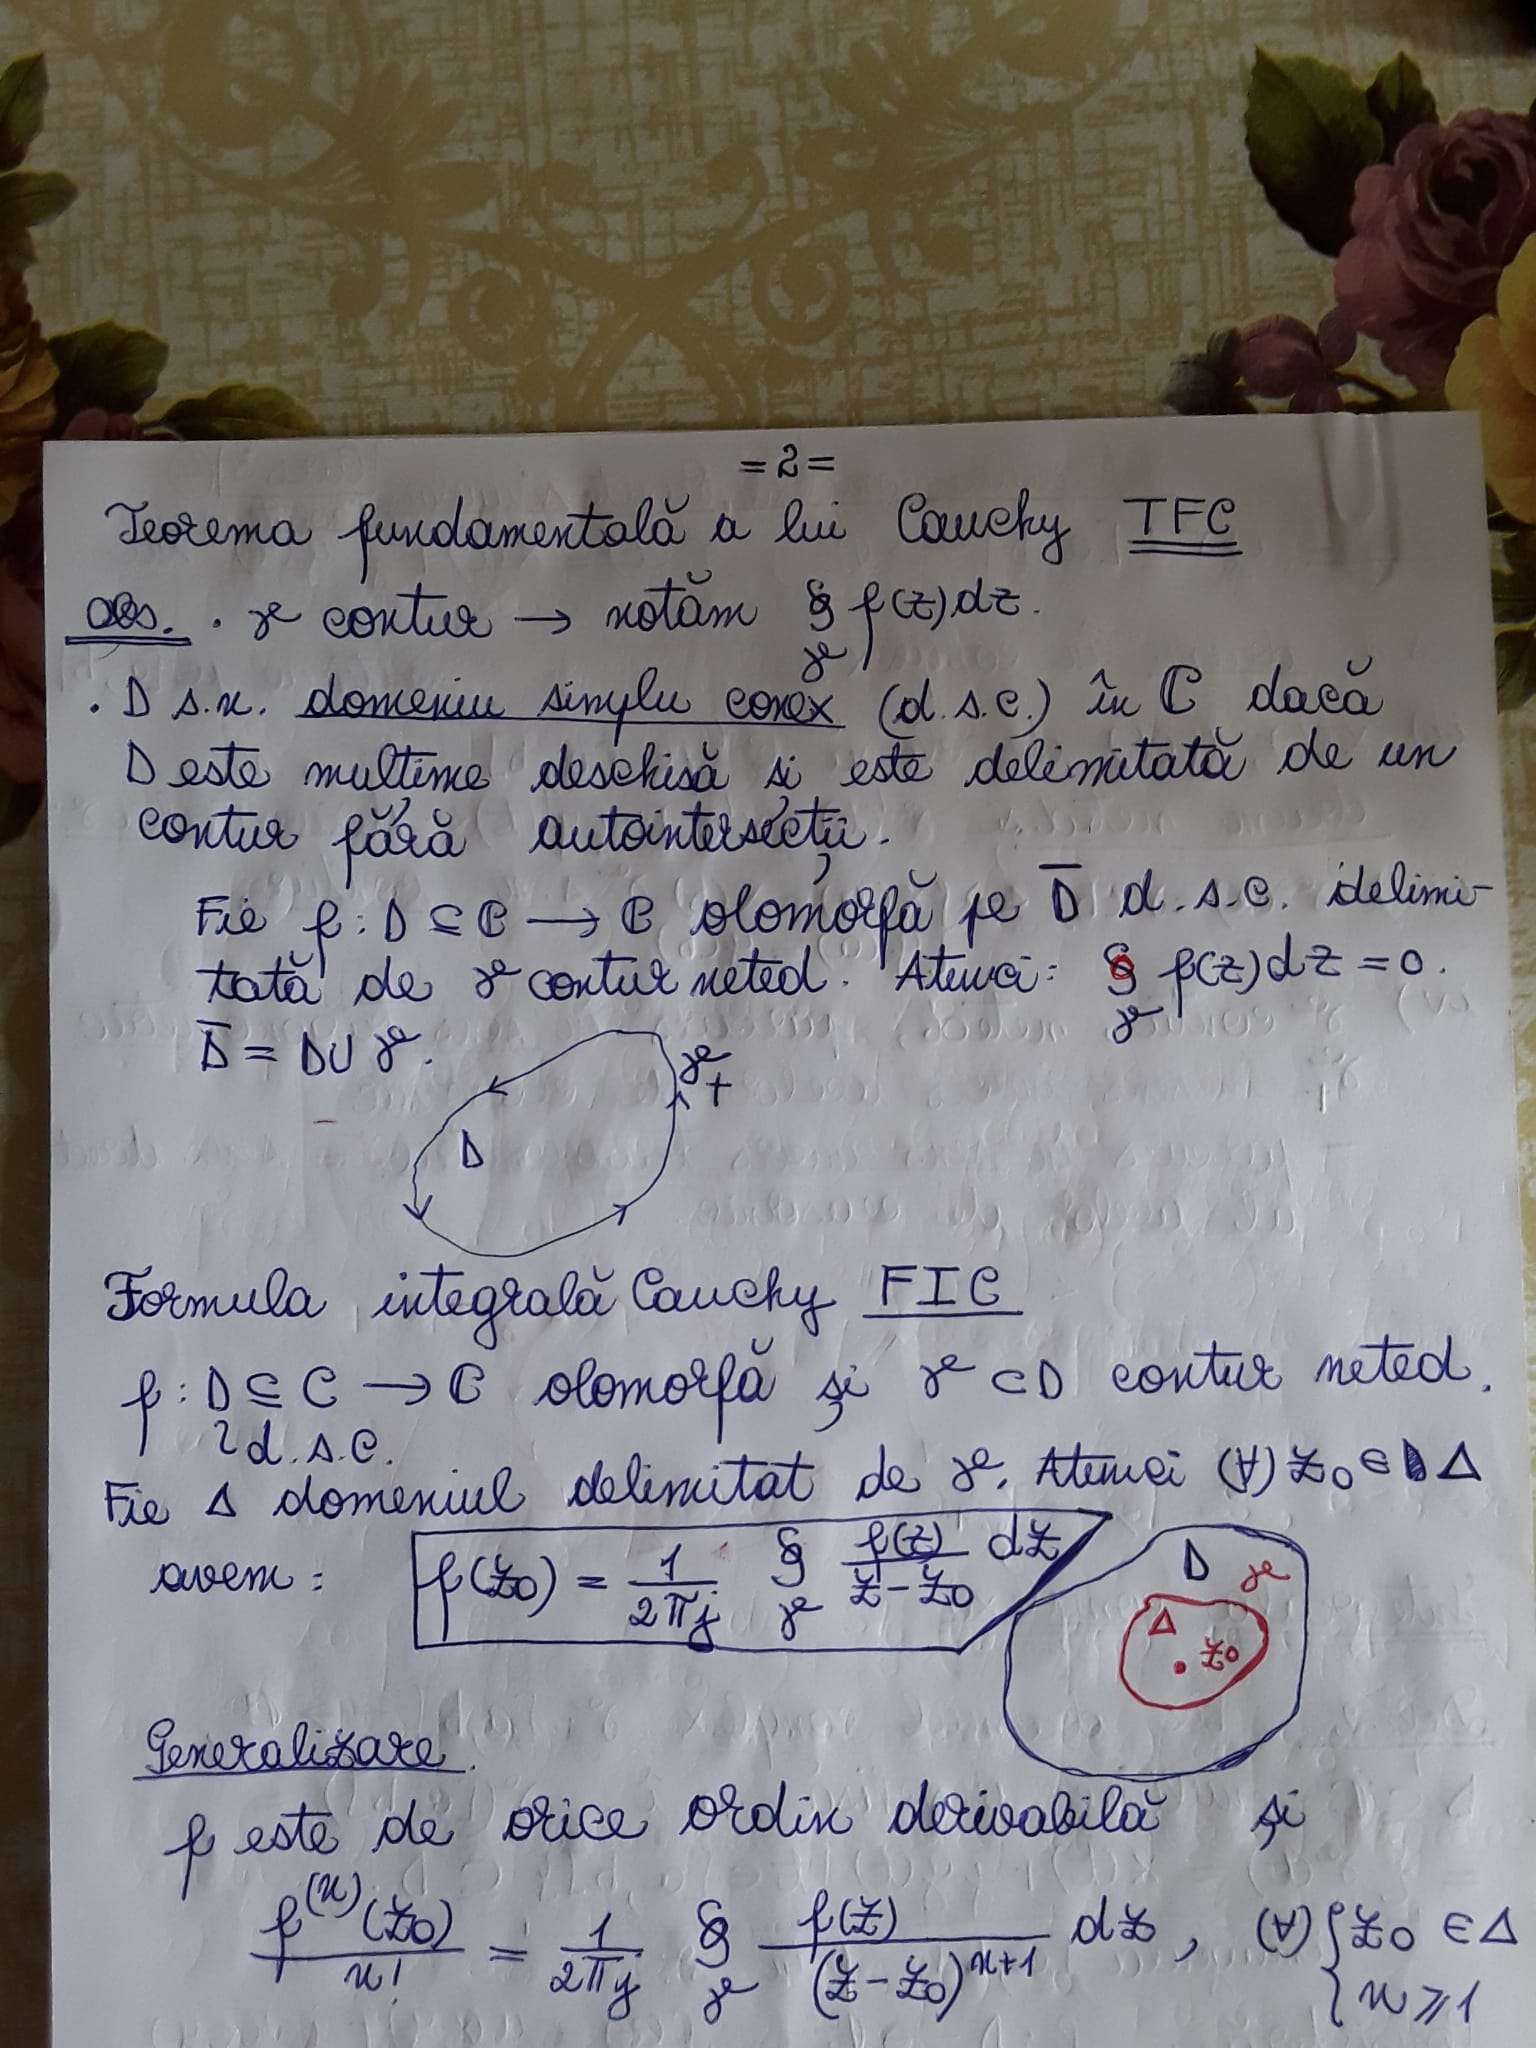 = 2 =
Teorema fundamentală a lui Cauchy TFC
Obs. · γ contur → notăm ∮ f(z)dz.
γ
· D s.n. domeniu simplu conex (d.s.c.) în ℂ dacă
D este mulțime deschisă și este delimitată de un
contur fără autointersecții.
Fie f : D ⊆ ℂ → ℂ olomorfă pe D̅ d.s.c. delimi-
tată de γ contur neted. Atunci: ∮ f(z)dz = 0.
γ
D̅ = D ∪ γ.
γ+
D
Formula integrală Cauchy FIC
f : D ⊆ ℂ → ℂ olomorfă și γ ⊂ D contur neted.
d.s.c.
Fie Δ domeniul delimitat de γ. Atunci (∀) z₀ ∈ Δ
avem : f(z₀) = 1/(2πj) ∮γ f(z)/(z - z₀) dz
D
γ
Δ
z₀
Generalizare.
f este de orice ordin derivabilă și
f⁽ⁿ⁾(z₀)/n! = 1/(2πj) ∮γ f(z)/(z - z₀)ⁿ⁺¹ dz, (∀) { z₀ ∈ Δ
n ⩾ 1